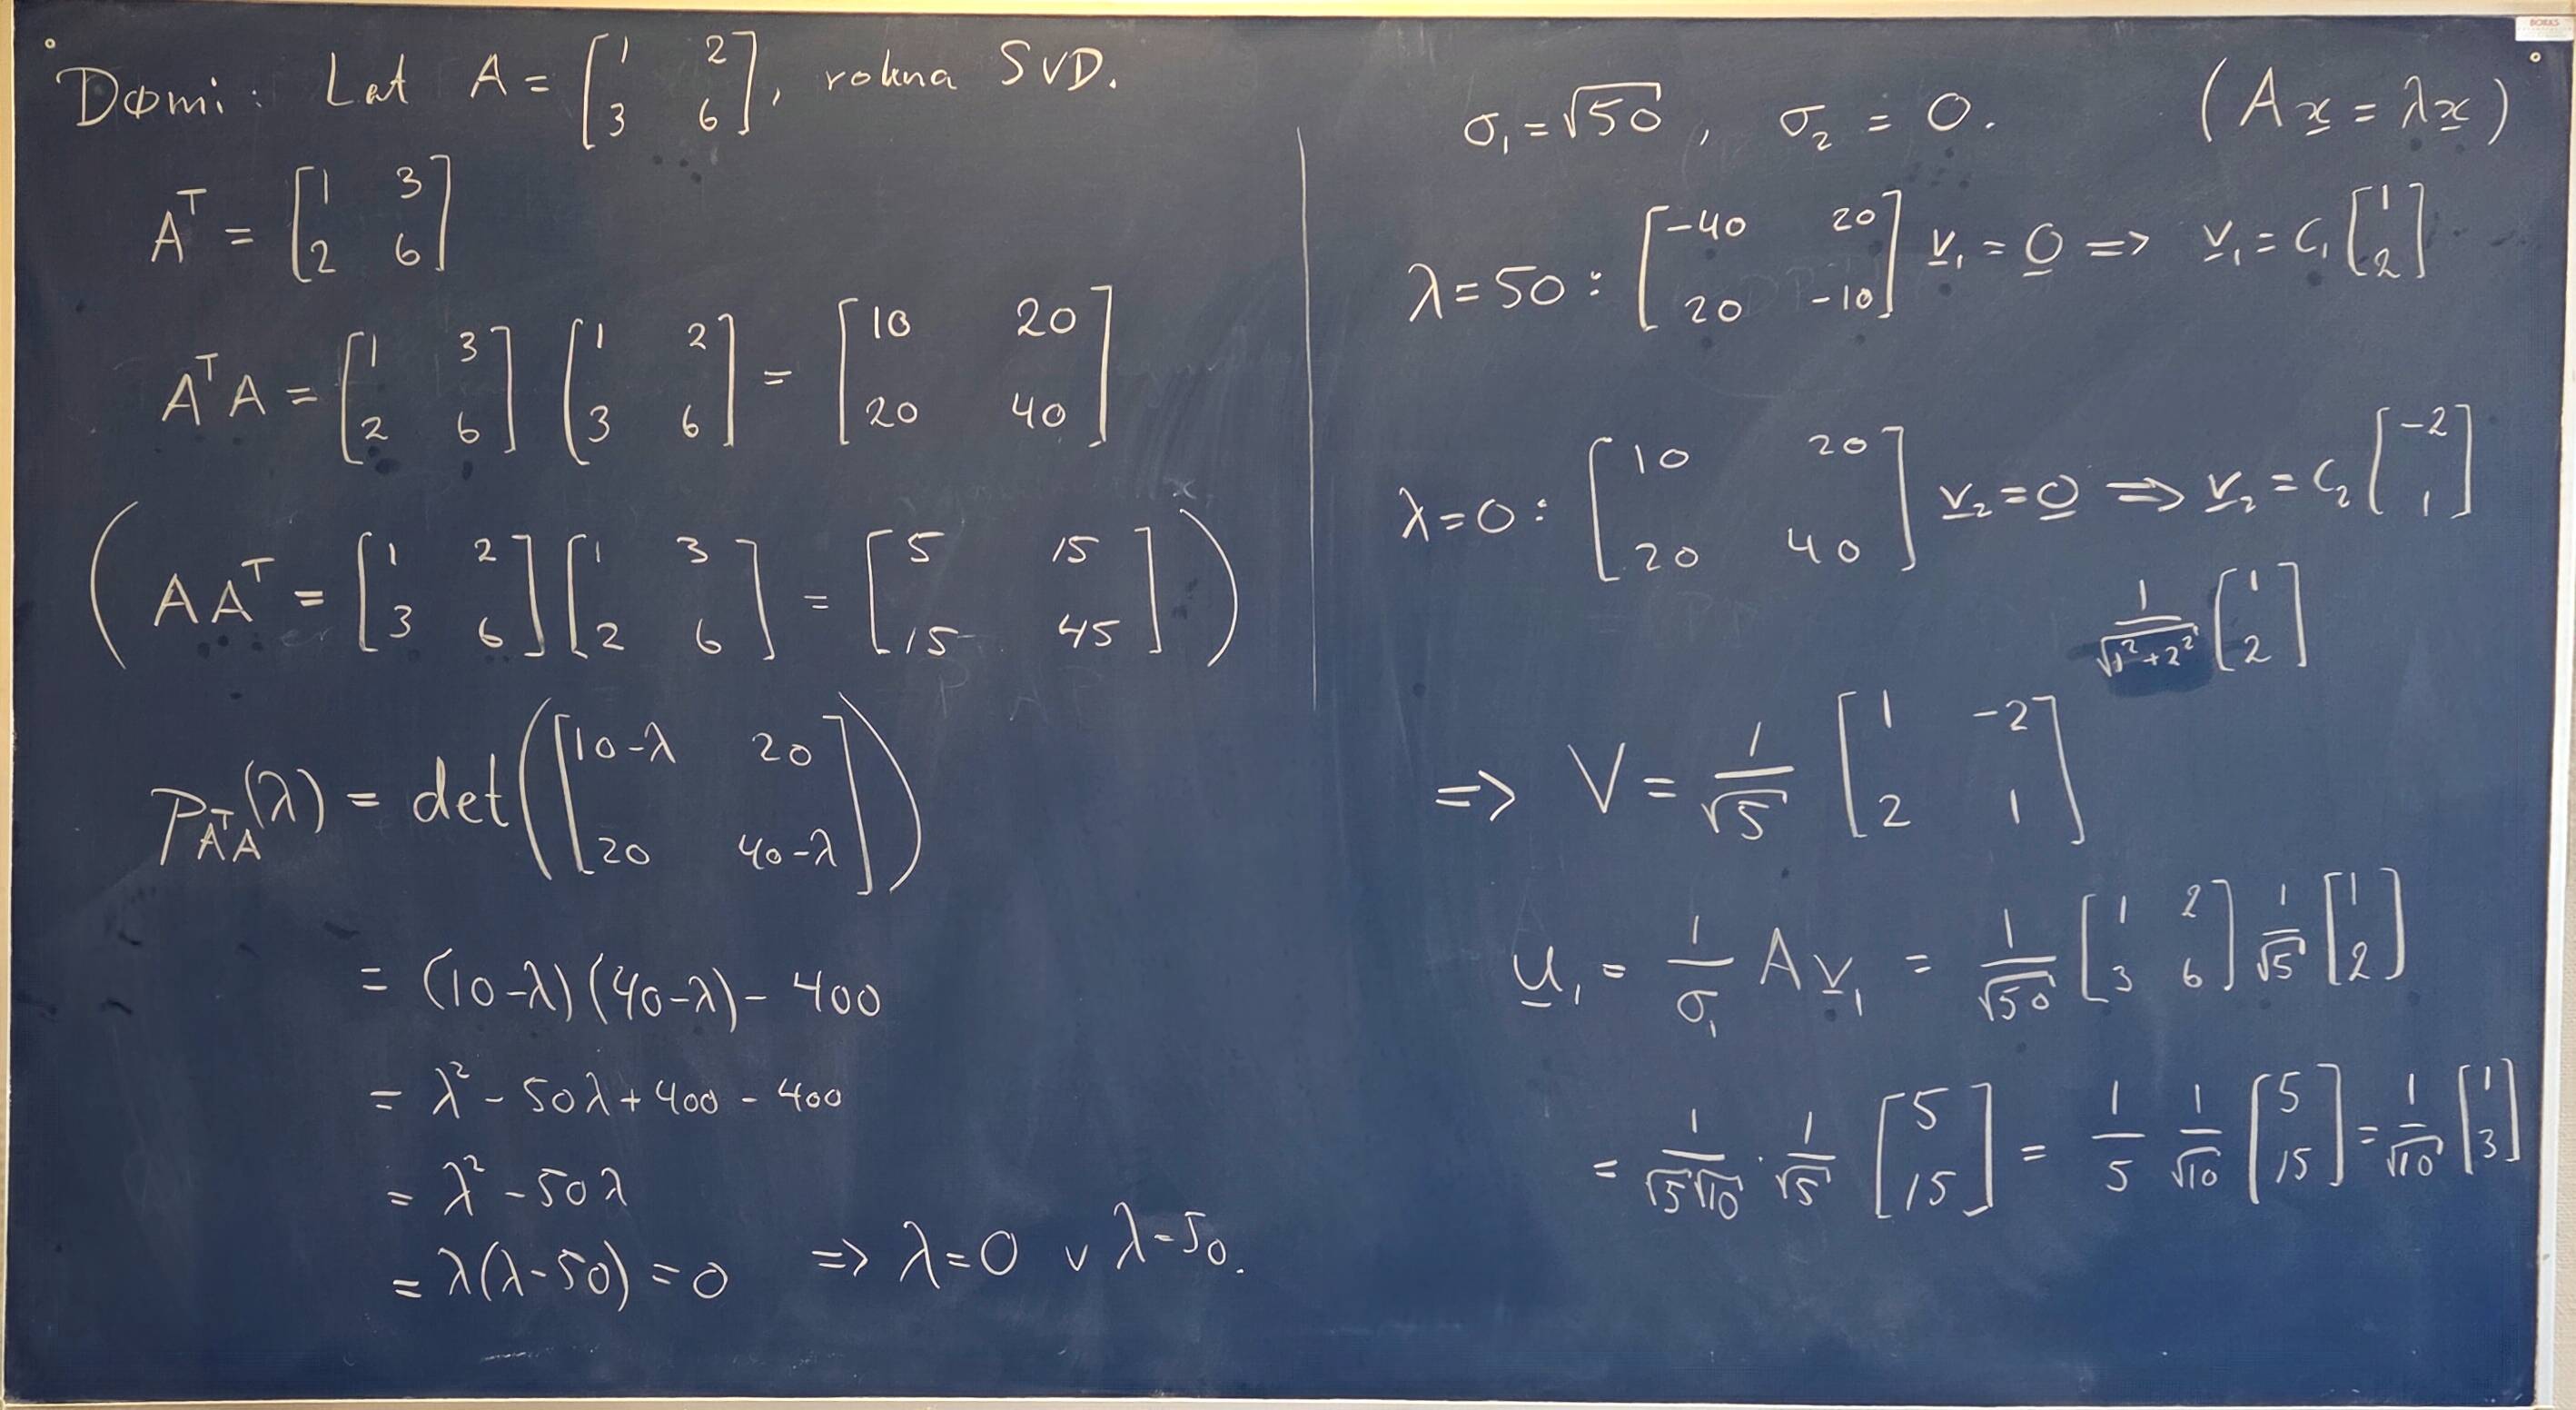 Dømi: Lat A = [1 2; 3 6], rokna SVD.
Aᵀ = [1 3; 2 6]
AᵀA = [1 3; 2 6] [1 2; 3 6] = [10 20; 20 40]
(AAᵀ = [1 2; 3 6] [1 3; 2 6] = [5 15; 15 45])
P_{AᵀA}(λ) = det([10-λ 20; 20 40-λ])
= (10-λ)(40-λ) - 400
= λ² - 50λ + 400 - 400
= λ² - 50λ
= λ(λ-50) = 0 => λ=0 ∨ λ=50.
σ₁ = √50, σ₂ = 0. (Ax̲ = λx̲)
λ=50: [-40 20; 20 -10] v̲₁ = 0̲ => v̲₁ = c₁ [1; 2]
λ=0: [10 20; 20 40] v̲₂ = 0̲ => v̲₂ = c₂ [-2; 1]
1/√(1²+2²) [1; 2]
=> V = 1/√5 [1 -2; 2 1]
u̲₁ = 1/σ₁ A v̲₁ = 1/√50 [1 2; 3 6] 1/√5 [1; 2]
= 1/(√5√10) · 1/√5 [5; 15] = 1/5 1/√10 [5; 15] = 1/√10 [1; 3]